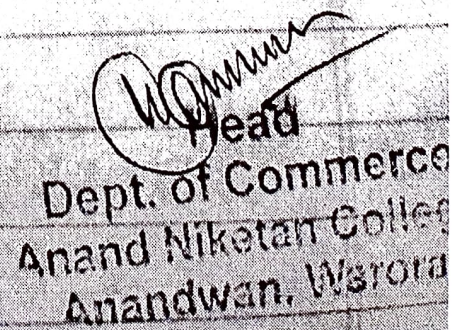 Head
Dept. of Commerce
Anand Niketan Colleg
Anandwan, Warora